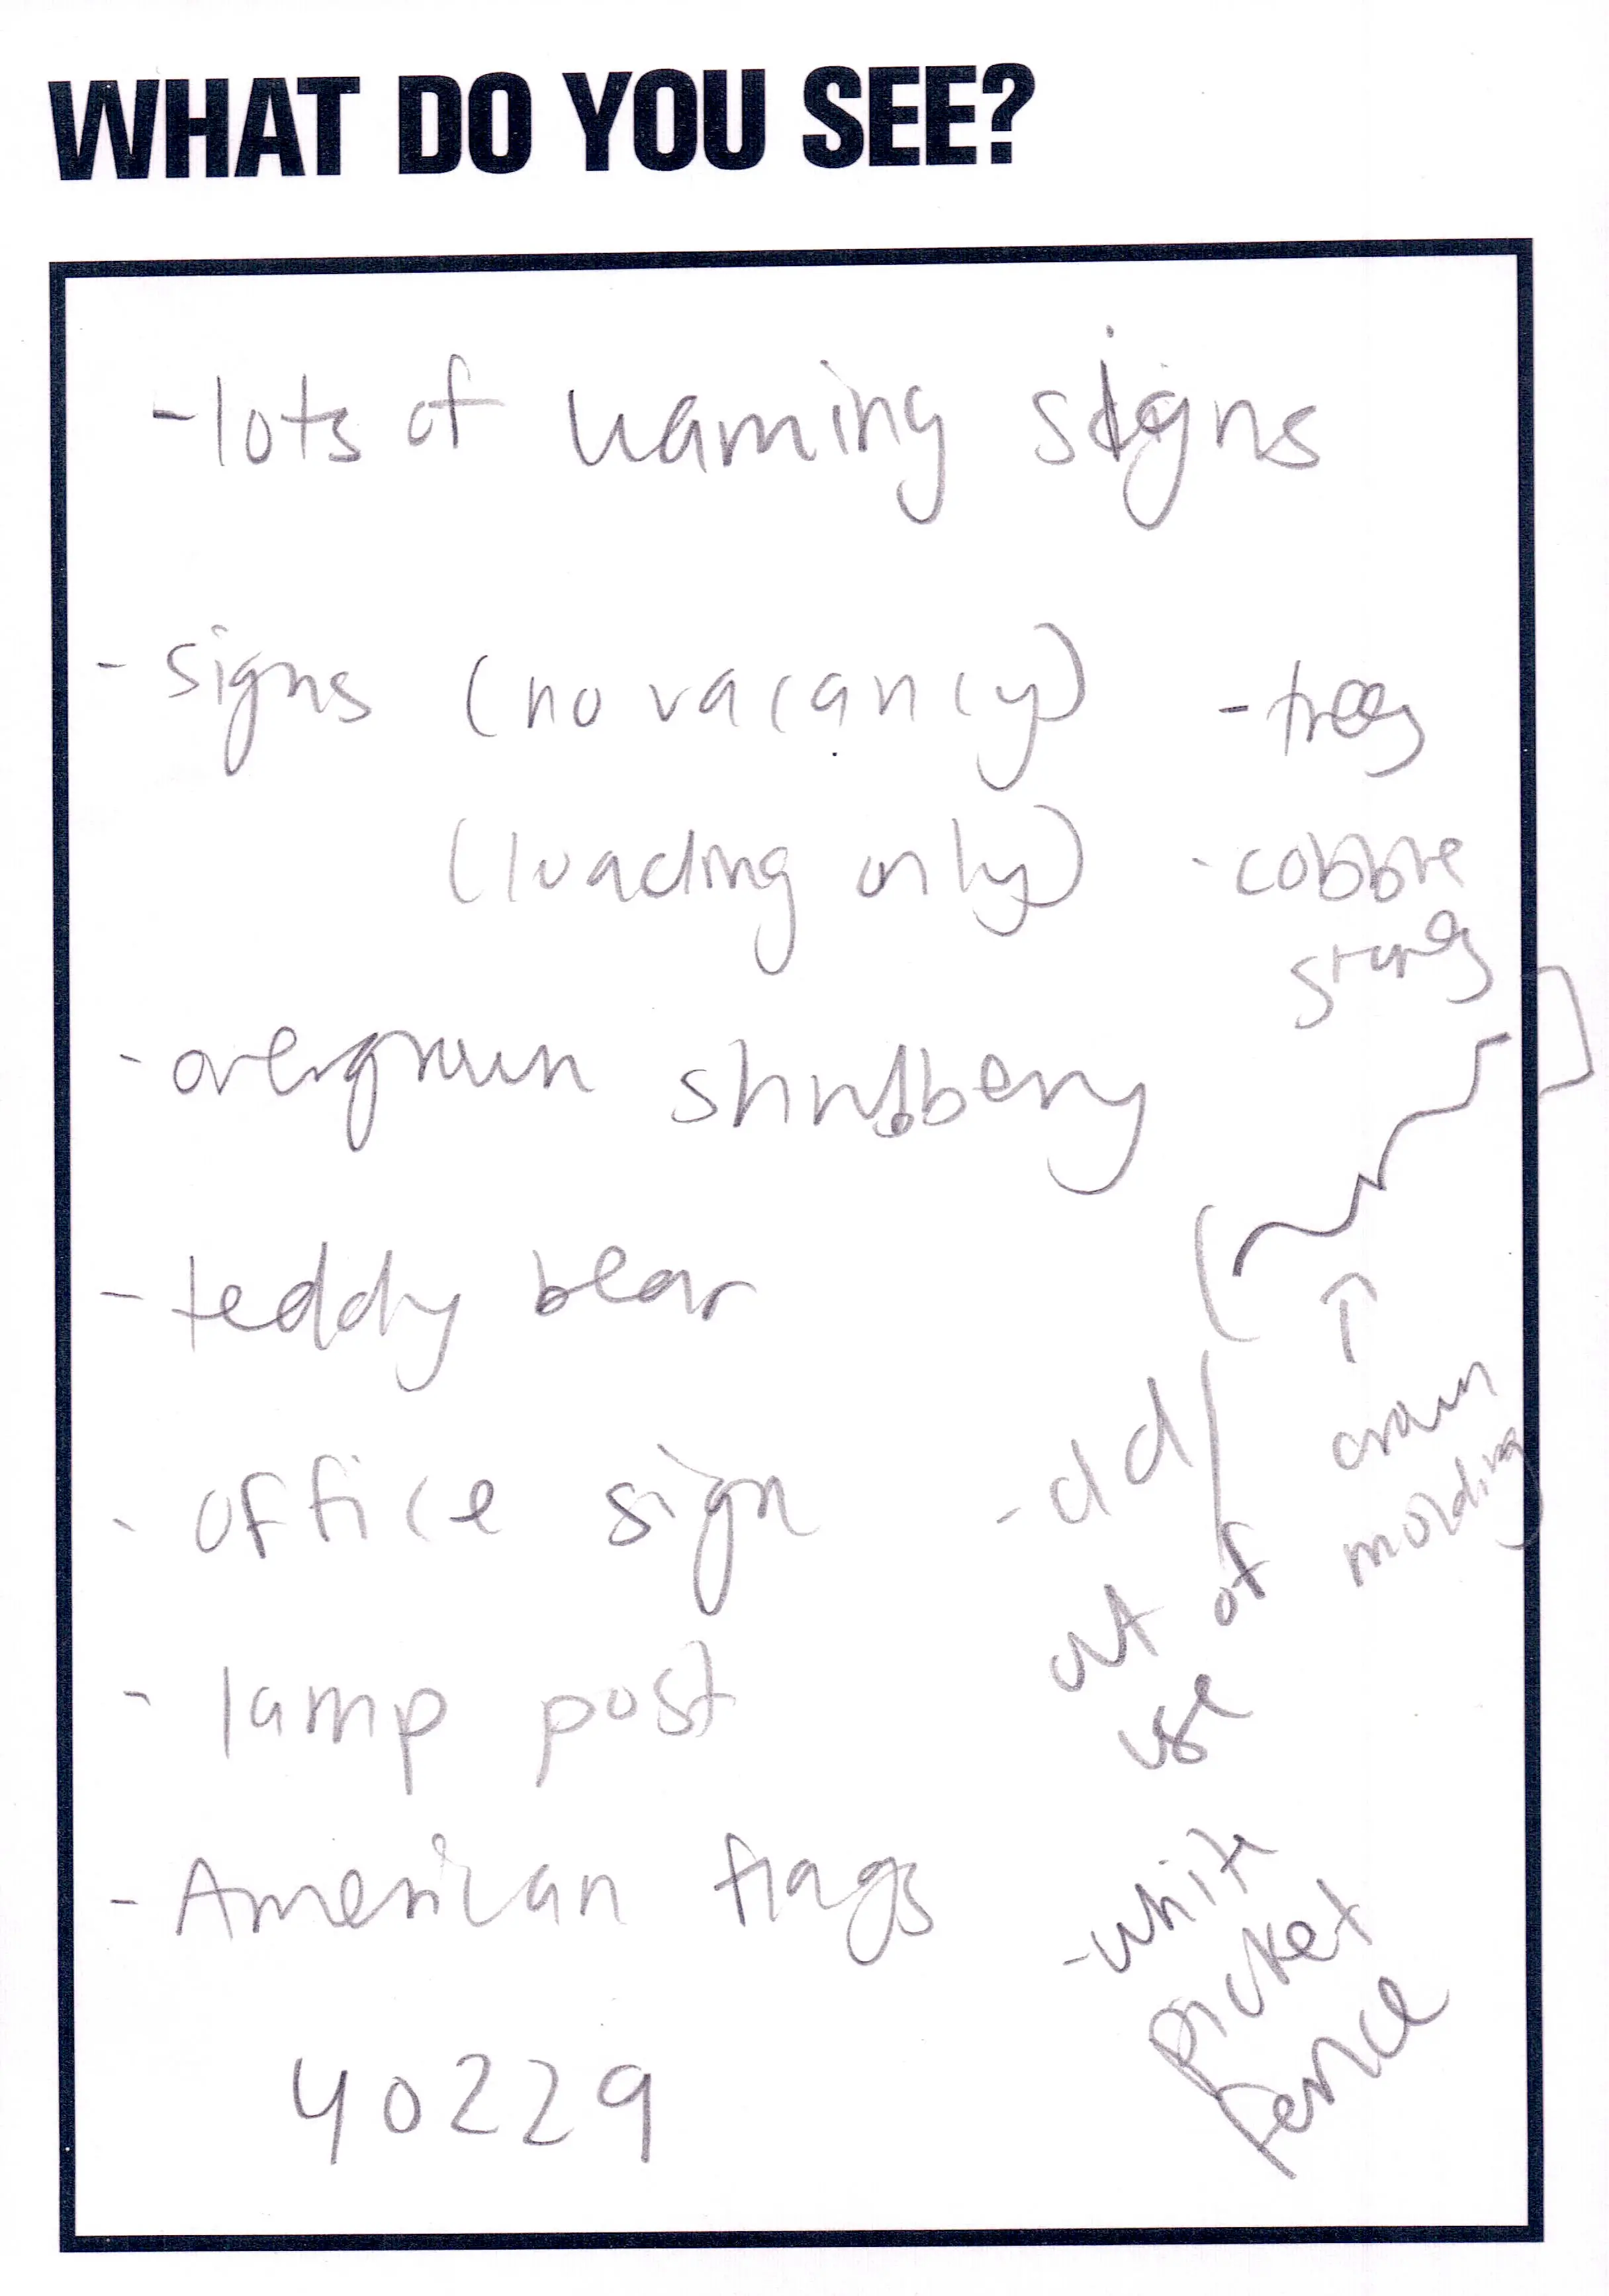 WHAT DO YOU SEE?
- lots of warning signs
- signs (no vacancy)
(loading only)
- trees
- cobble
stones
- overgrown shrubbery
- teddy bear
- office sign
- lamp post
- American flags
40229
crown
molding
- old/
out of
use
- white
picket
fence